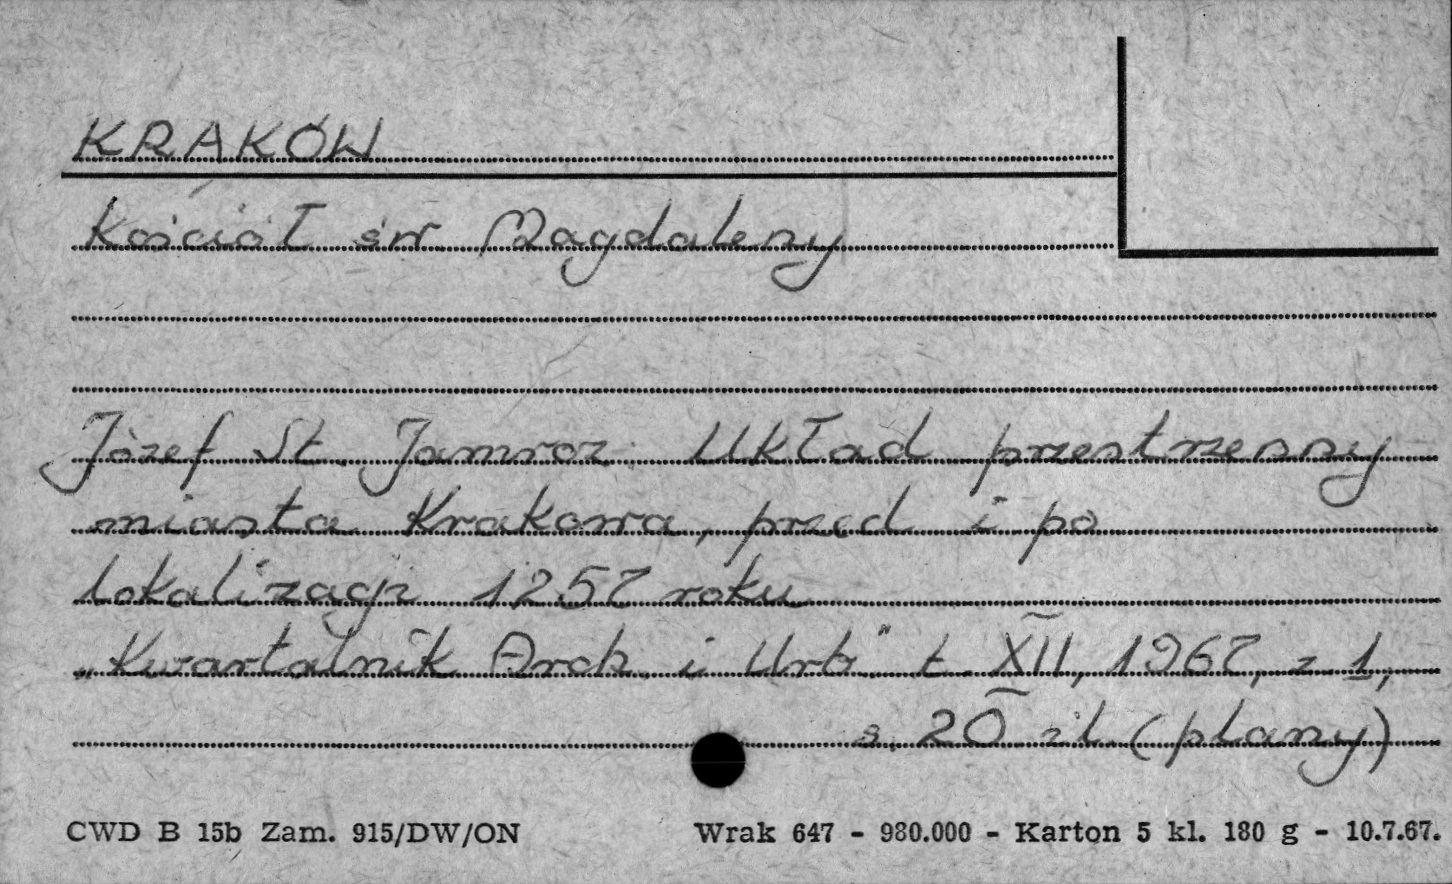 KRAKÓW
Kościół św Magdaleny
Józef St. Jamroz. Układ przestrzenny
miasta Krakowa, przed i po
lokalizacji 1257 roku
„Kwartalnik Arch. i Urb" t. XII, 1967, z 1,
s. 20 il. (plany)
CWD B 15b Zam. 915/DW/ON Wrak 647 - 980.000 - Karton 5 kl. 180 g - 10.7.67.